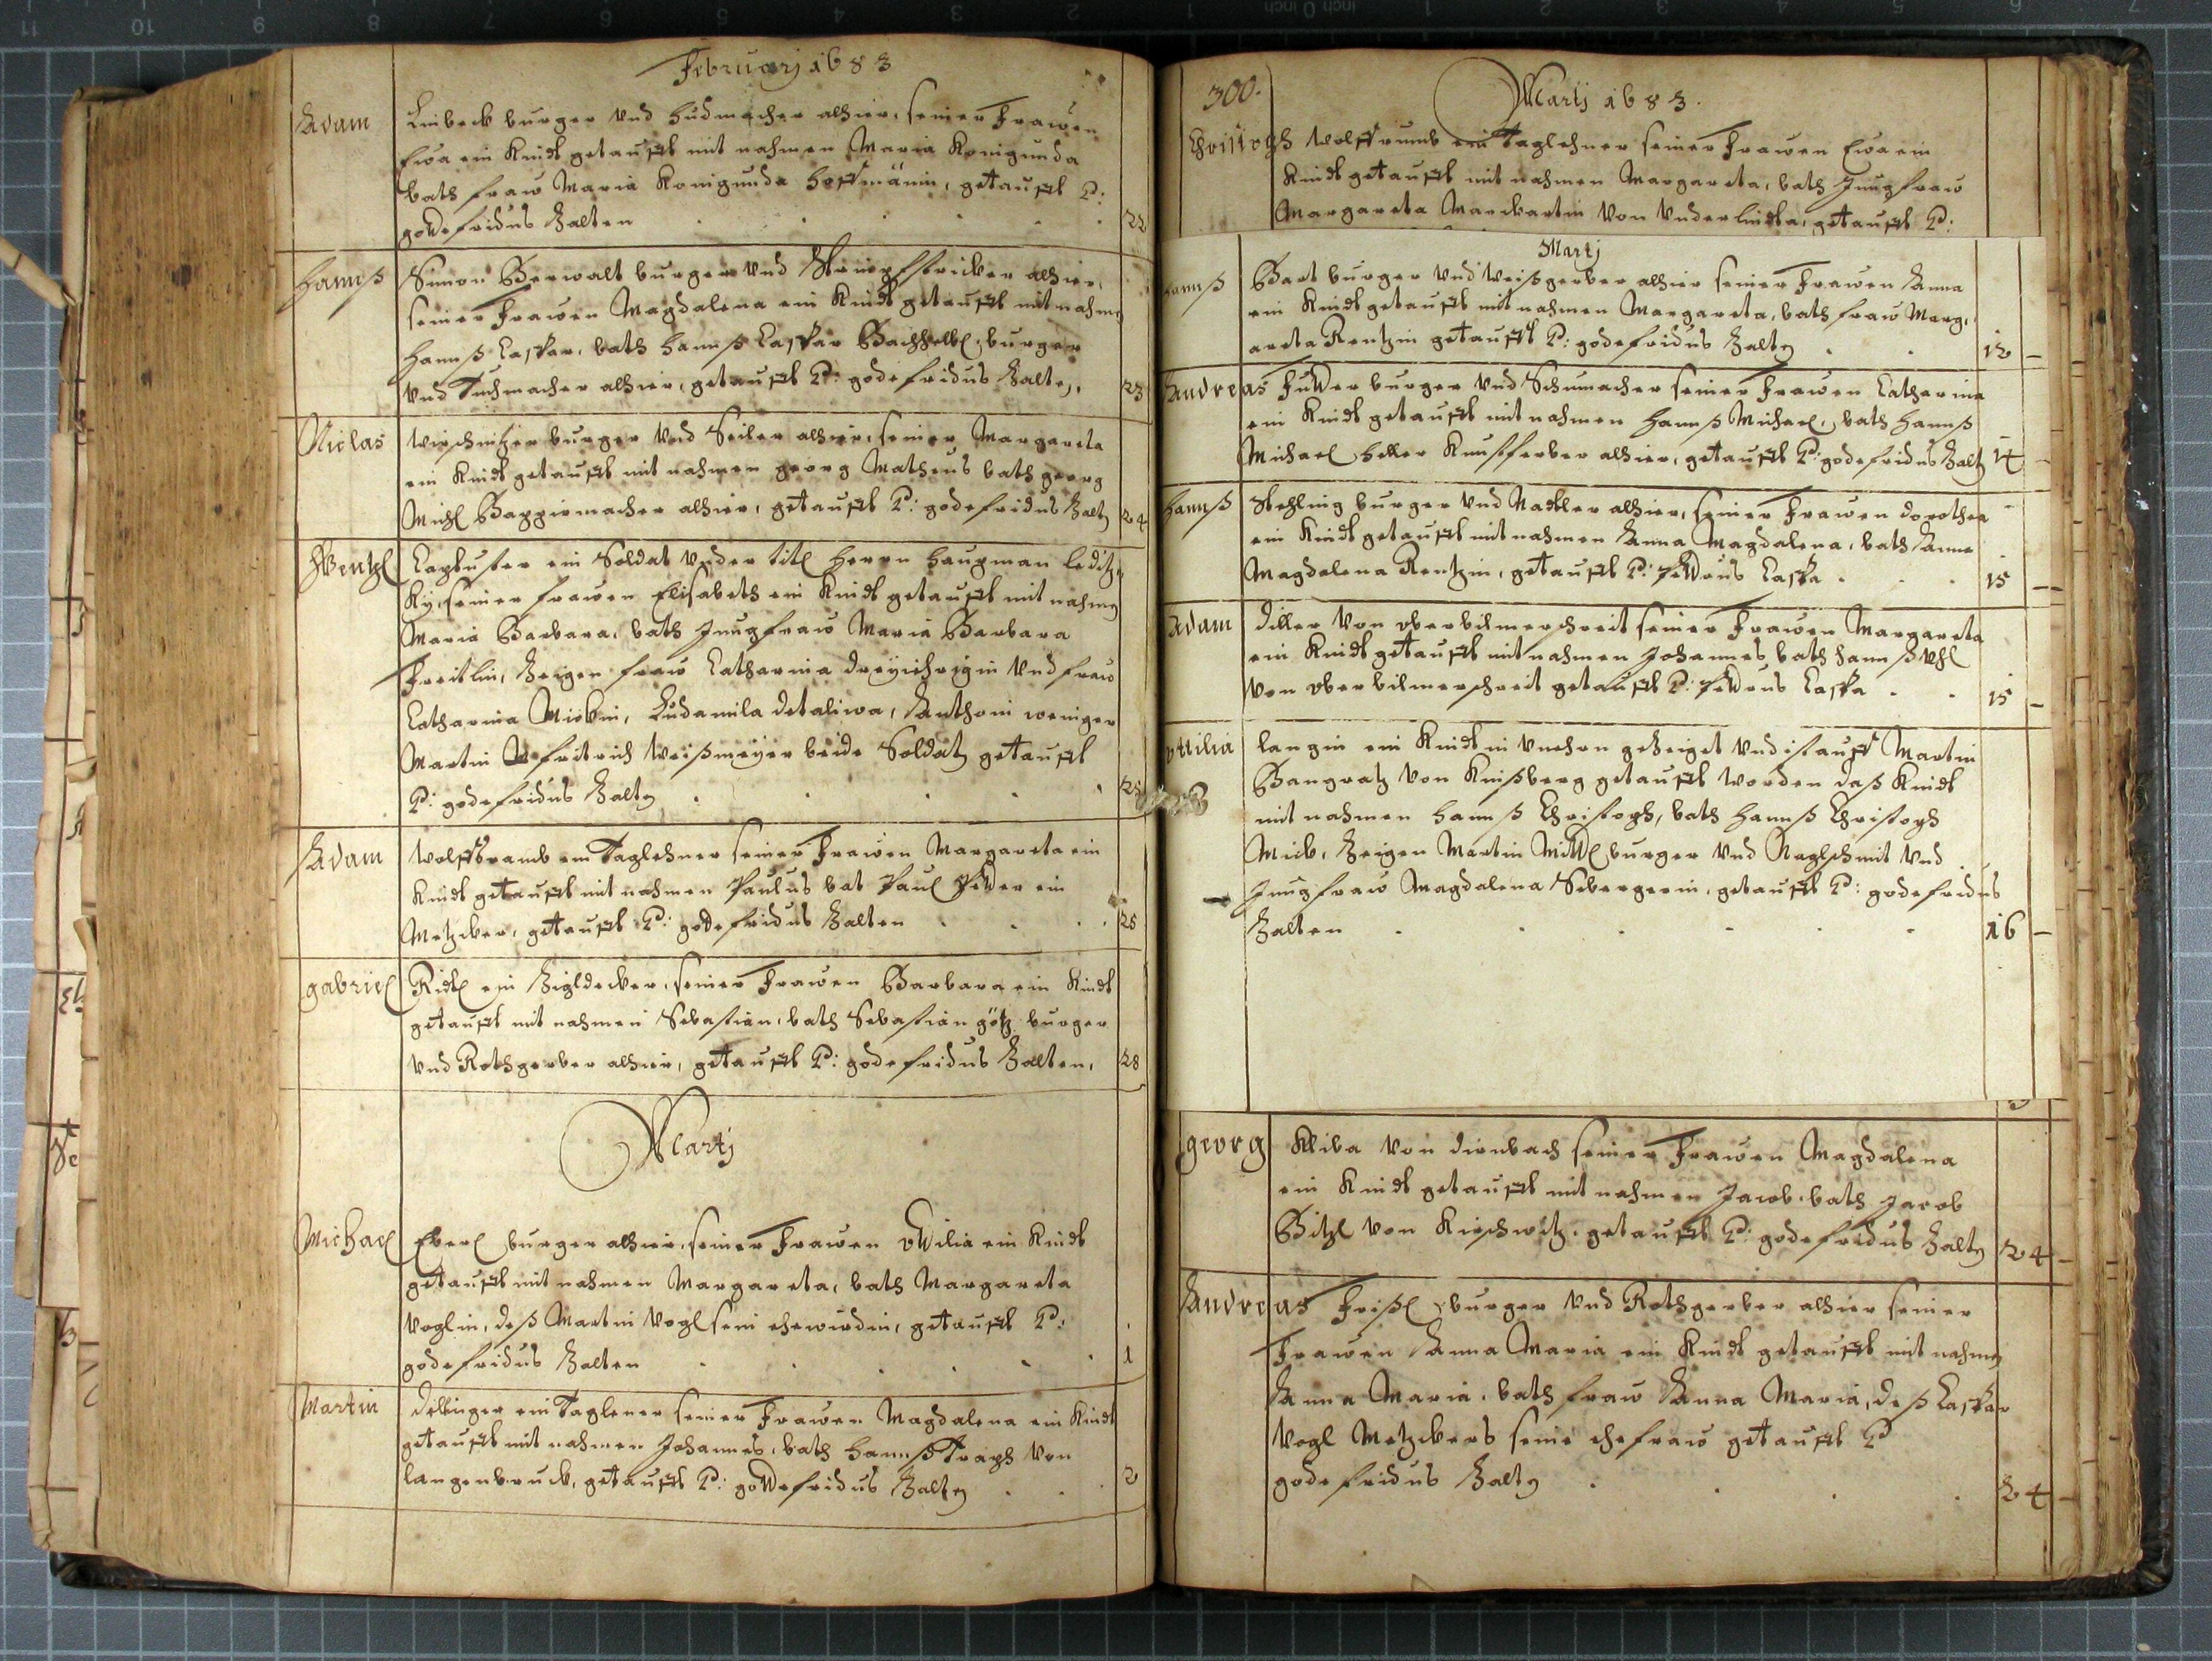 Februarij 1683
Adam Linbeck burger und hudmacher alhier, seiner Frawen
Ewa ein Kindt getaufft mit nahmen Maria Konigunda
bath fraw Maria Konigunda hoffmänin, getaufft P:
godefridus Zalten . . . . . 22
Hannß Simon Berwalt burger und Strimpfstricker alhier,
seiner Frawen Magdalena ein Kindt getaufft mit nahmen
Hannß Caspar, bath Hannß Caspar Bachhelbl, burger
und Tuchmacher alhier, getaufft P: godefridus Zalten, 23
Niclas Wirschnitzer burger und Seiler alhier, seiner Margareta
ein Kindt getaufft mit nahmen georg Matheus bath georg
Michl Bappirmacher alhier, getaufft P: godefridus Zalten 24
Wentzl ein Soldat under titl Herrn Haupman
seiner frawen Elisabeth ein Kindt getaufft mit nahmen
Maria Barbara, bath Jungfraw Maria Barbara
Freitlin, Zeigen fraw Catharina und fraw
Catharina Ludamila Anthoni weniger
Martin fritrich Weißmeyer beide Soldaten getaufft
P: godefridus Zalten . . . . 25
Adam Wolfframb ein Taglehner seiner Frawen Margareta ein
Kindt getaufft mit nahmen Paulus bat Paul ein
Metzcker, getaufft P: godefridus Zalten . . . 25
gabriel Ridl ein Zigldecker, seiner Frawen Barbara ein Kindt
getaufft mit nahmen Sebastian, bath Sebastian götz burger
und Rothgerber alhier, getaufft P: godefridus Zalten, 28
Martj
Michael Eberl burger alhier, seiner Frawen Ottilia ein Kindt
getaufft mit nahmen Margareta, bath Margareta
Voglin, deß Martin Vogl sein ehewirdin, getaufft P:
godefridus Zalten . . . . . 1
Martin Dilbinger ein Taglener seiner Frawen Magdalena ein Kindt
getaufft mit nahmen Johannes, bath Hannß Tragh von
langenbruck, getaufft P: godefridus Zalten . . . 2
300.
Martij 1683.
Christoph Wolffrumb ein Taglehner seiner Frawen Ewa ein
Kindt getaufft mit nahmen Margareta, bath Jungfraw
Margareta Marckartin von Underlindta, getaufft P:
Martj
Hannß Bart burger und Weißgerber alhier seiner Frawen Anna
ein Kindt getaufft mit nahmen Margareta, bath fraw Marg,
areta Rentzin getaufft P: godefridus Zalten . . 12
Andreas Futter burger und Schumacher seiner Frawen Catharina
ein Kindt getaufft mit nahmen Hannß Michael, bath Hannß
Michael heller Kunstferber alhier, getaufft P: godefridus Zalten 14
Hannß Stehling burger und Nadtler alhier, seiner Frawen dorothea
ein Kindt getaufft mit nahmen Anna Magdalena, bath Anna
Magdalena Rentzin, getaufft P: Caspa . . . 15
Adam diller von oberbilmerschreit seiner Frawen Margareta
ein Kindt getaufft mit nahmen Johannes bath Hannß Uhl
von oberbilmerschreit getaufft P: Caspa . . 15
Ottilia langin ein Kindt in unehrn gezeiget und ist auff Martin
Bangratz von Kinßberg getaufft worden daß Kindt
mit nahmen Hannß Christoph, bath Hannß Christoph
Mick, Zeigen Martin Mittl burger und Naglschmit und
Jungfraw Magdalena Sebergerin, getaufft P: godefridus
Zalten . . . . . 16
georg Kliba von dirnbach seiner Frawen Magdalena
ein Kindt getaufft mit nahmen Jacob, bath Jacob
Bitzl von Kirschwitz, getaufft P: godefridus Zalten 24
Andreas Frißl, burger und Rothgerber alhier seiner
Frawen Anna Maria ein Kindt getaufft mit nahmen
Anna Maria, bath fraw Anna Maria, deß Caspar
Vogl Metzckers seine ehefraw getaufft P
godefridus Zalten . . . . 24